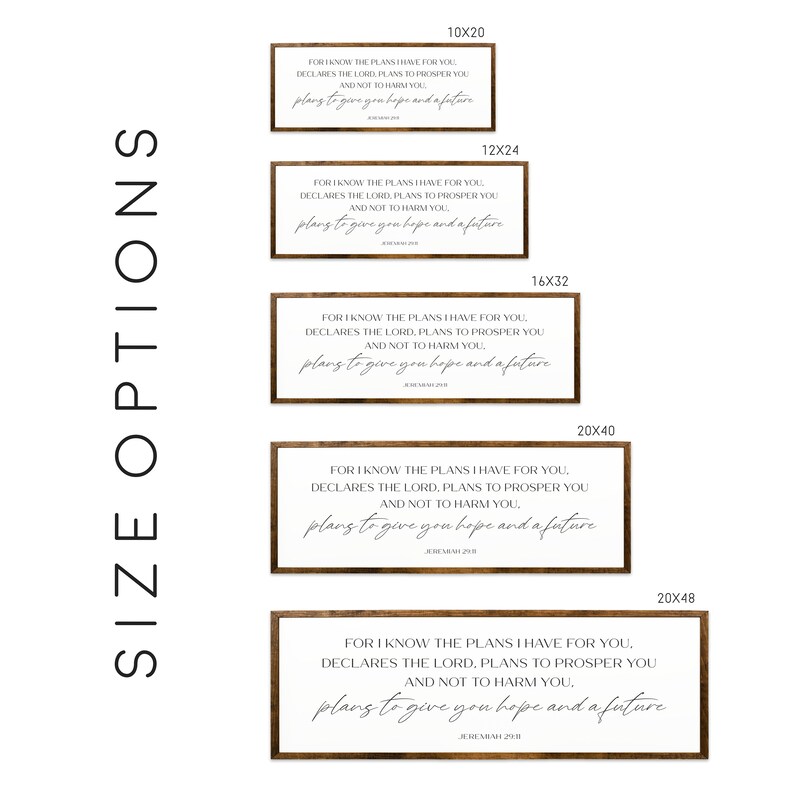 SIZE OPTIONS
10X20
FOR I KNOW THE PLANS I HAVE FOR YOU,
DECLARES THE LORD, PLANS TO PROSPER YOU
AND NOT TO HARM YOU,
plans to give you hope and a future
JEREMIAH 29:11
12X24
FOR I KNOW THE PLANS I HAVE FOR YOU,
DECLARES THE LORD, PLANS TO PROSPER YOU
AND NOT TO HARM YOU,
plans to give you hope and a future
JEREMIAH 29:11
16X32
FOR I KNOW THE PLANS I HAVE FOR YOU,
DECLARES THE LORD, PLANS TO PROSPER YOU
AND NOT TO HARM YOU,
plans to give you hope and a future
JEREMIAH 29:11
20X40
FOR I KNOW THE PLANS I HAVE FOR YOU,
DECLARES THE LORD, PLANS TO PROSPER YOU
AND NOT TO HARM YOU,
plans to give you hope and a future
JEREMIAH 29:11
20X48
FOR I KNOW THE PLANS I HAVE FOR YOU,
DECLARES THE LORD, PLANS TO PROSPER YOU
AND NOT TO HARM YOU,
plans to give you hope and a future
JEREMIAH 29:11